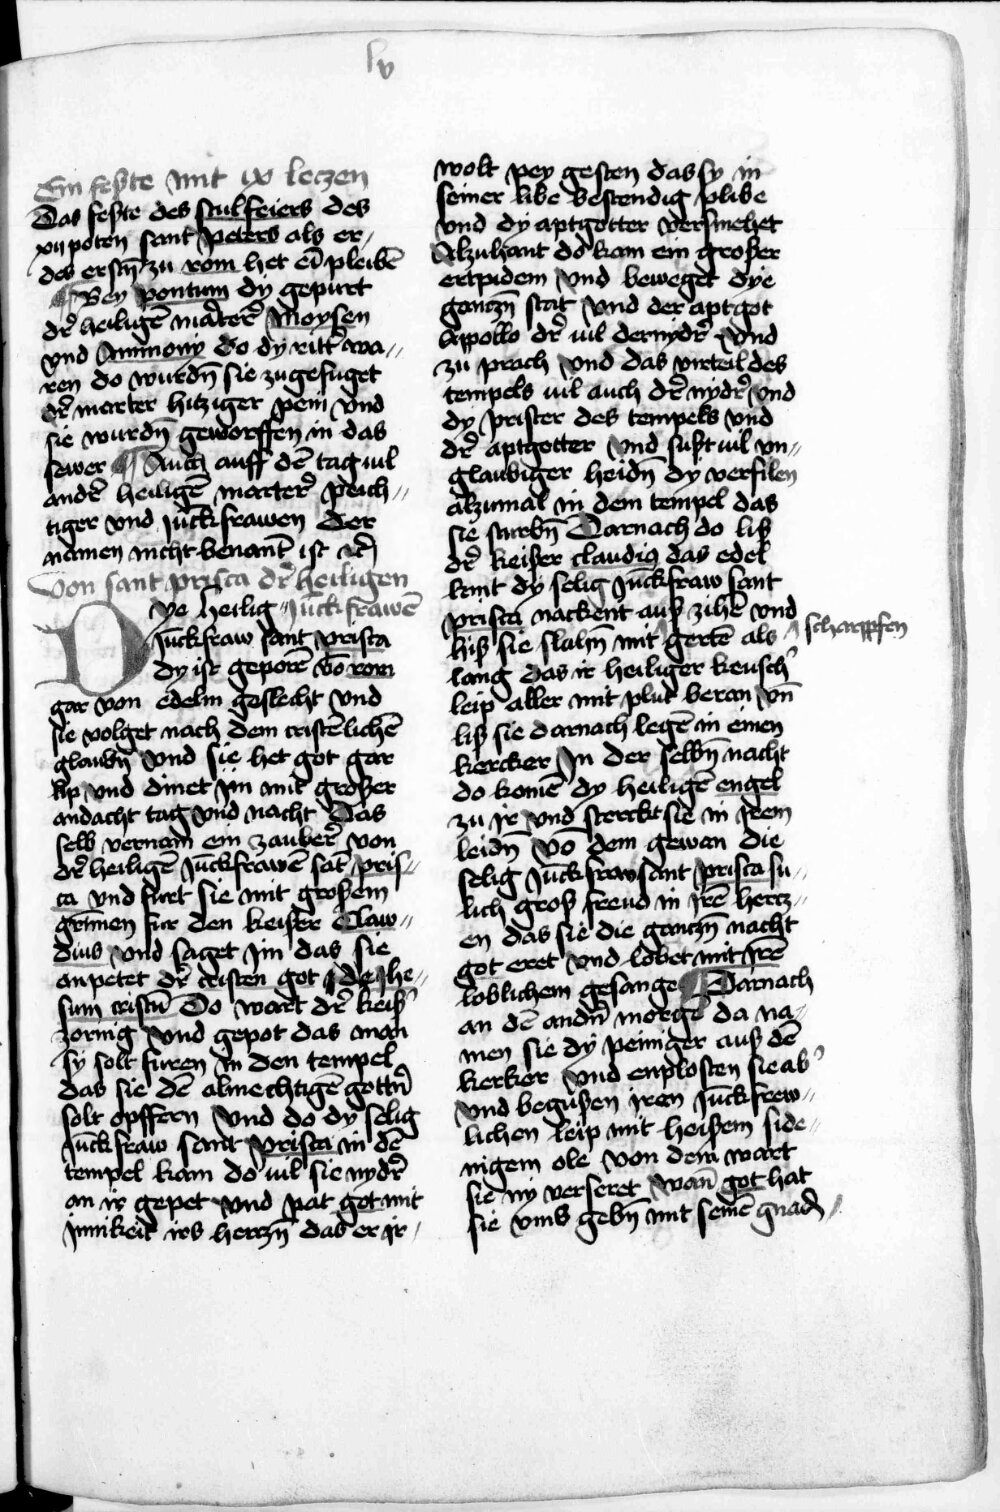 lv
Ein feste mit ix leczen
Das feste des stulfeiers des
xij poten sant peters als er
des erstn̄ zu rom het ein pleibē
Bey pontum dy gepurt
dr̄ heiligē mart̄erer̄ Moysen
vnd Ammony do dy ritt̄er wa„
ren do wurdn̄ sie zugefuget
dr̄ marter hitziger pein vnd
sie wurdn̄ geworffen in das
fewer Auch auff dē tag uil
ander̄ heiligē marterer̄ peich„
tiger vnd Juckfrawen der
namen nicht benant̄ ist
Von sant prisca dr̄ heiligen
Dye heilig Juckfrawē
Juckfraw sant prisca
dy ist geporē vō rom
gar von edelm geslecht vnd
sie volget nach dem cristēlichē
glaubn̄ vnd sie het got gar
lip vnd dinet im mit großer
andacht tag vnd nacht Das
selb vernam ein zauber̄ von
dr̄ heiligē Juckfrawē sāt pris„
ca vnd furt sie mit großem
grimen fur den keiser Claw„
dius vnd saget im das sie
anpetet dr̄ cristen got Jhe„
sum cristū Do wart dr̄ keis̄
zornig vnd gepot das man
sy solt furen in den tempel
das sie dē almechtigē gottn̄
solt opffern vnd do dy selig
Juckfraw sant prisca in dē
tempel kam do uil sie nydr̄
an ir gepet vnd pat got mit
Innikeit irs herczn̄ das er ir
wolt pey gesten das sy in
seiner libe bestendig plibe
vnd dy aptgotter versmehet
Alzuhant do kam ein großer
ertpidem vnd beweget dye
ganczn̄ stat vnd der aptgot
Appollo dr̄ uil dernydr̄ vnd
zu prach vnd das virteil des
tempels uil auch dr̄ nydr̄ vnd
dy prister des tempels vnd
dr̄ aptgotter vnd sust uil vn„
glaubiger heidn̄ dy verfilen
alzumal in dem tempel das
sie sturbn̄ Darnach do liß
dr̄ keiser claudius das edel
kint dy selig Juckfraw sant
prisca nackent auß zihē vnd
hiß sie slahn̄ mit gertē als
scharpffen
lang das ir heiliger keusch̄
leip aller mit plut beran vn̄
liß sie darnach legē in einen
kercker In der selbn̄ nacht
do komē dy heiligē engel
zu ir vnd sterckt sie in irem
leidn̄ vō dem gewan die
selig Juckfraw sant prisca su„
lich groß freud in irē hercz„
en das sie die ganczn̄ nacht
got eret vnd lobet mit irē
loblichem gesange Darnach
an dē andn̄ morgē da na„
men sie dy peiniger auß dē
kerker vnd enplosten sie ab
vnd begußen iren Juckfrew„
lichen leip mit heißem side„
nigem ole von dem wart
sie ny verseret wan̄ got hat
sie vns gebn̄ mit seinē gnadn̄